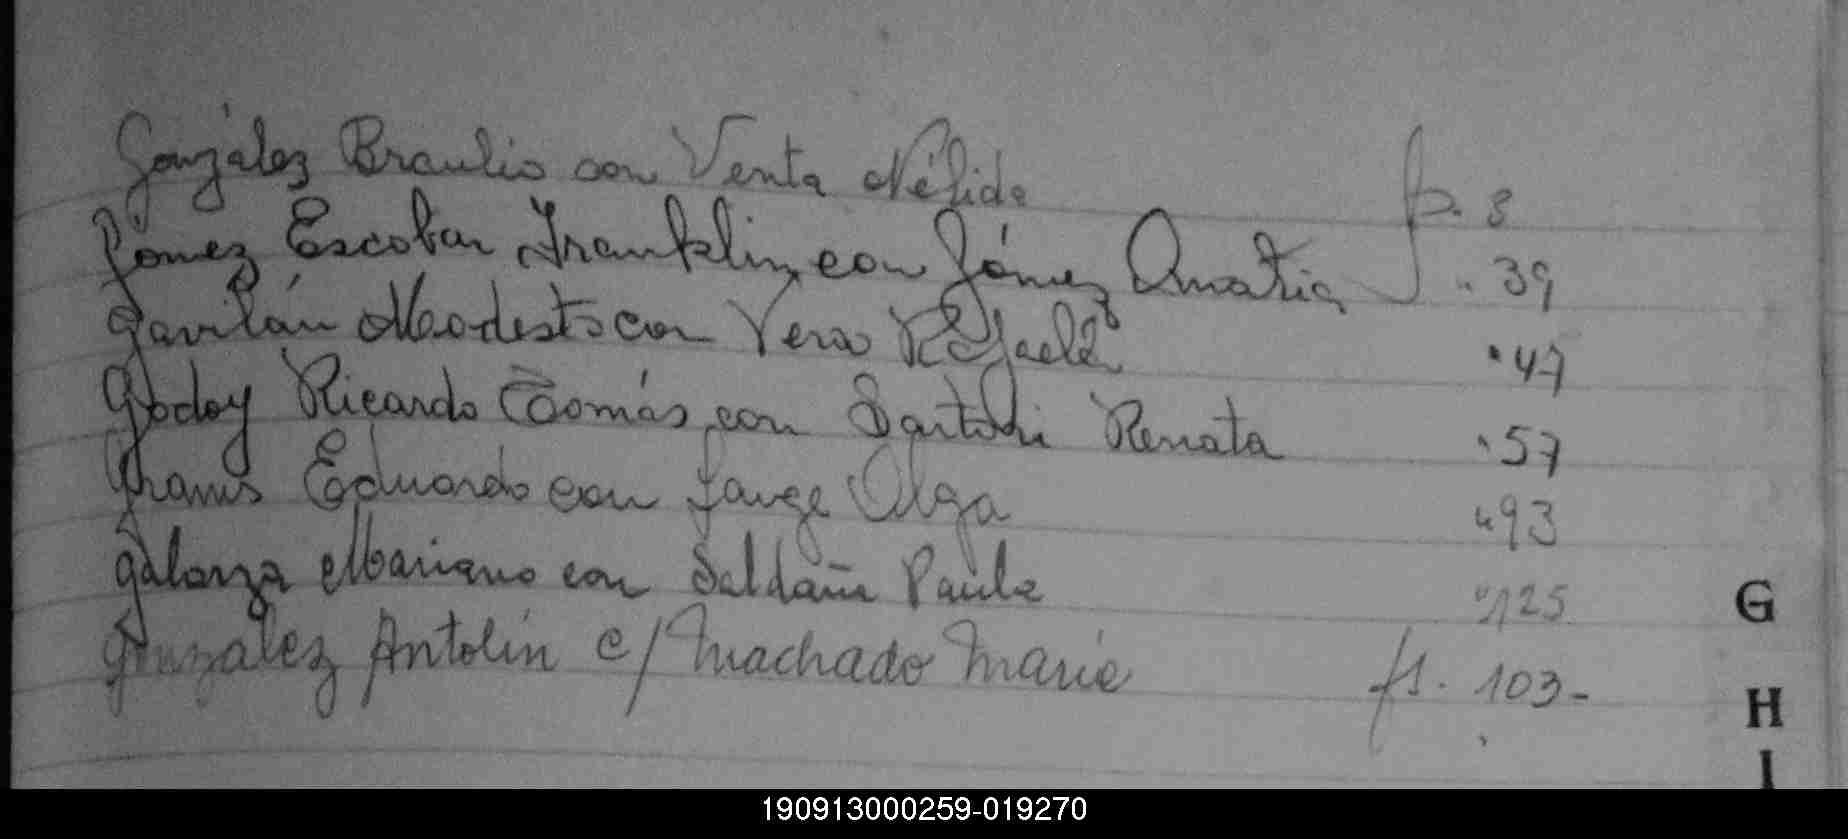 González Braulio con Venta Nélida fs. 3
Gómez Escobar Franklin con Gómez " 39
Gavilán Modesto con Vera " 47
Godoy Ricardo Tomás con Sartori Renata " 57
Eduardo con Olga " 93
Galarza Mariano con Saldaña Paula " 125
González Antolín c/ Machado María fs. 103-
G
H
I
190913000259-019270